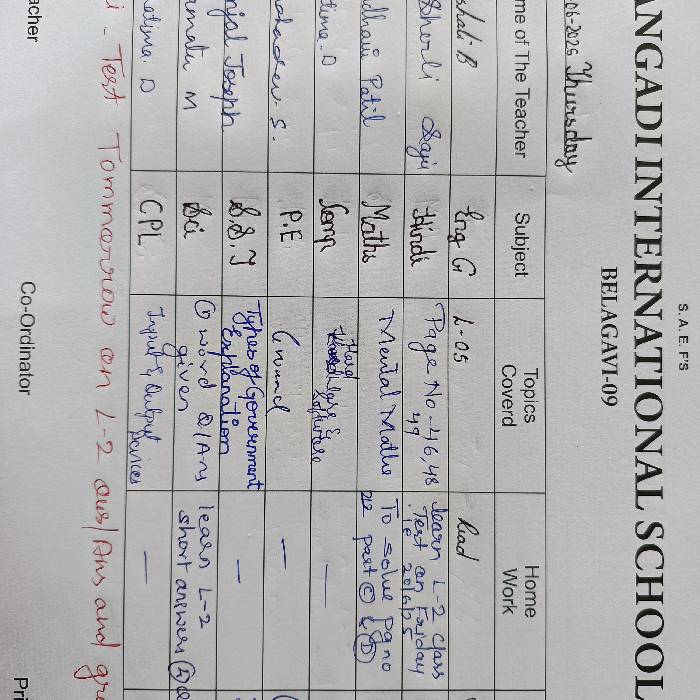 S.A.E.F'S
ANGADI INTERNATIONAL SCHOOL
BELAGAVI-09
06-2025 Thursday
me of The Teacher Subject Topics Coverd Home Work
shali B Eng G L-05 Read
Sherli Saju Hindi Page No-46,48 49 learn L-2 class Test on Friday ie 20/6/25
dhavi Patil Maths Mental Maths To solve pg no 22 part C & D
atima. D Comp Hard ware & Software —
ahadev. S. P.E Ground —
njal Joseph S.S.T Types of Government Explanation —
M Sci word Q/Ans given learn L-2 short answers
atima. D CPL Input & Output Devices —
i - Test Tommorrow on L-2 Qus/Ans and gr
acher Co-Ordinator Pri